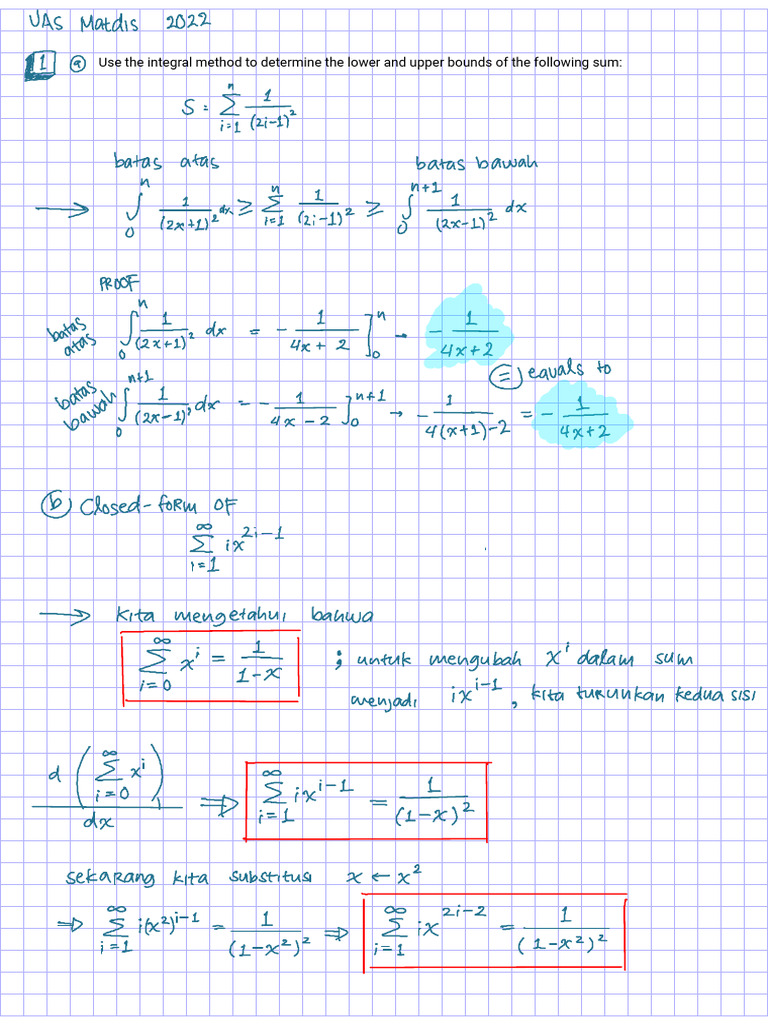 UAS Matdis 2022
1 (a) Use the integral method to determine the lower and upper bounds of the following sum:
S = ∑_{i=1}^{n} 1/(2i-1)²
batas atas batas bawah
→ ∫_0^n 1/(2x+1)² dx ≥ ∑_{i=1}^{n} 1/(2i-1)² ≥ ∫_0^{n+1} 1/(2x-1)² dx
PROOF
batas atas ∫_0^n 1/(2x+1)² dx = - 1/(4x+2) ]_0^n → - 1/(4x+2)
(=) equals to
batas bawah ∫_0^{n+1} 1/(2x-1)² dx = - 1/(4x-2) ]_0^{n+1} → - 1/(4(x+1)-2) = - 1/(4x+2)
(b) Closed-form OF
∑_{i=1}^{∞} ix^{2i-1}
→ kita mengetahui bahwa
∑_{i=0}^{∞} x^i = 1/(1-x) ; untuk mengubah x^i dalam sum
menjadi ix^{i-1}, kita turunkan kedua sisi
d(∑_{i=0}^{∞} x^i)/dx ⇒ ∑_{i=1}^{∞} ix^{i-1} = 1/(1-x)²
sekarang kita substitusi x ← x²
⇒ ∑_{i=1}^{∞} i(x²)^{i-1} = 1/(1-x²)² ⇒ ∑_{i=1}^{∞} ix^{2i-2} = 1/(1-x²)²